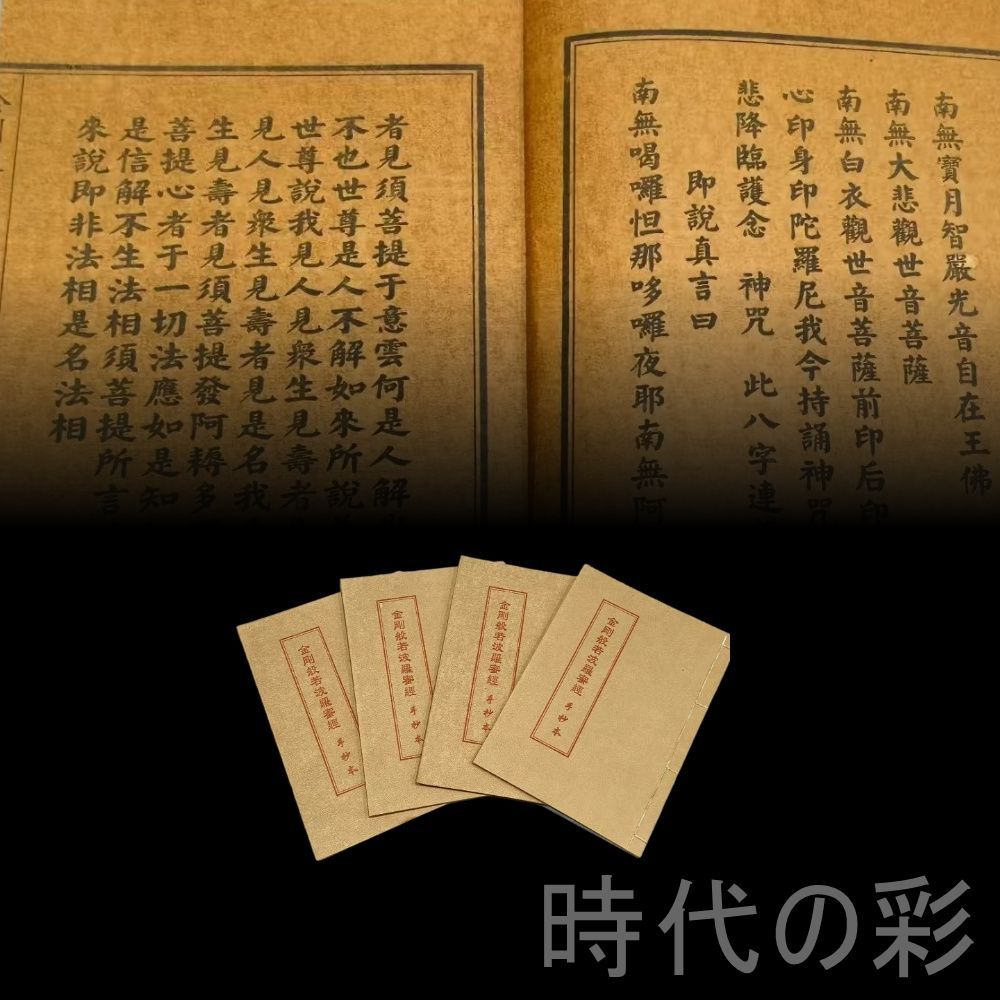 南無寶月智嚴光音自在王佛
南無大悲觀世音菩薩
南無白衣觀世音菩薩前印后印
心印身印陀羅尼我今持誦神咒
悲降臨護念 神咒 此八字連
即說真言曰
南無喝囉怛那哆囉夜耶南無阿
者見須菩提于意雲何是人解
不也世尊是人不解如來所說
世尊說我見人見眾生見壽者
見人見衆生見壽者見是名我
生見壽者見須菩提發阿耨多
菩提心者于一切法應如是知
是信解不生法相須菩提所言
來說即非法相是名法相
金剛般若波羅蜜經 手抄本
金剛般若波羅蜜經 手抄本
金剛般若波羅蜜經 手抄本
金剛般若波羅蜜經 手抄本
時代の彩